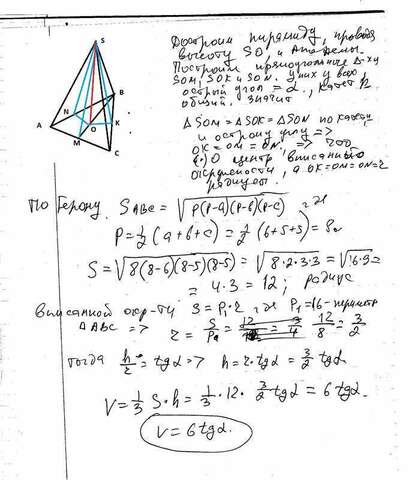 S
B
N
A
O
K
M
C
Достроим пирамиду, проведя
высоту SO, и апофемы.
Построим прямоугольные Δ-ки
SOM, SOK и SON. У них у всех
острый угол = α, катет h
общий. Значит
ΔSOM = ΔSOK = ΔSON по катету
и острому углу =>
OK = OM = ON. => что
(•) O центр вписанного
окружности, а OK=OM=ON=r
радиусы.
По Герону. S ABC = √P(P-a)(P-b)(P-c) где
P = 1/2 (a+b+c) = 1/2 (6+5+5) = 8.
S = √8(8-6)(8-5)(8-5) = √8·2·3·3 = √16·9 =
= 4·3 = 12; радиус
вписанной окр-ти S = P·r где P₁=16 - периметр
ΔABC => r = S/P = 12/8 = 3/2
тогда h/r = tgα => h = r·tgα = 3/2 tgα
V = 1/3 S·h = 1/3 · 12 · 3/2 tgα = 6 tgα.
V = 6 tgα.